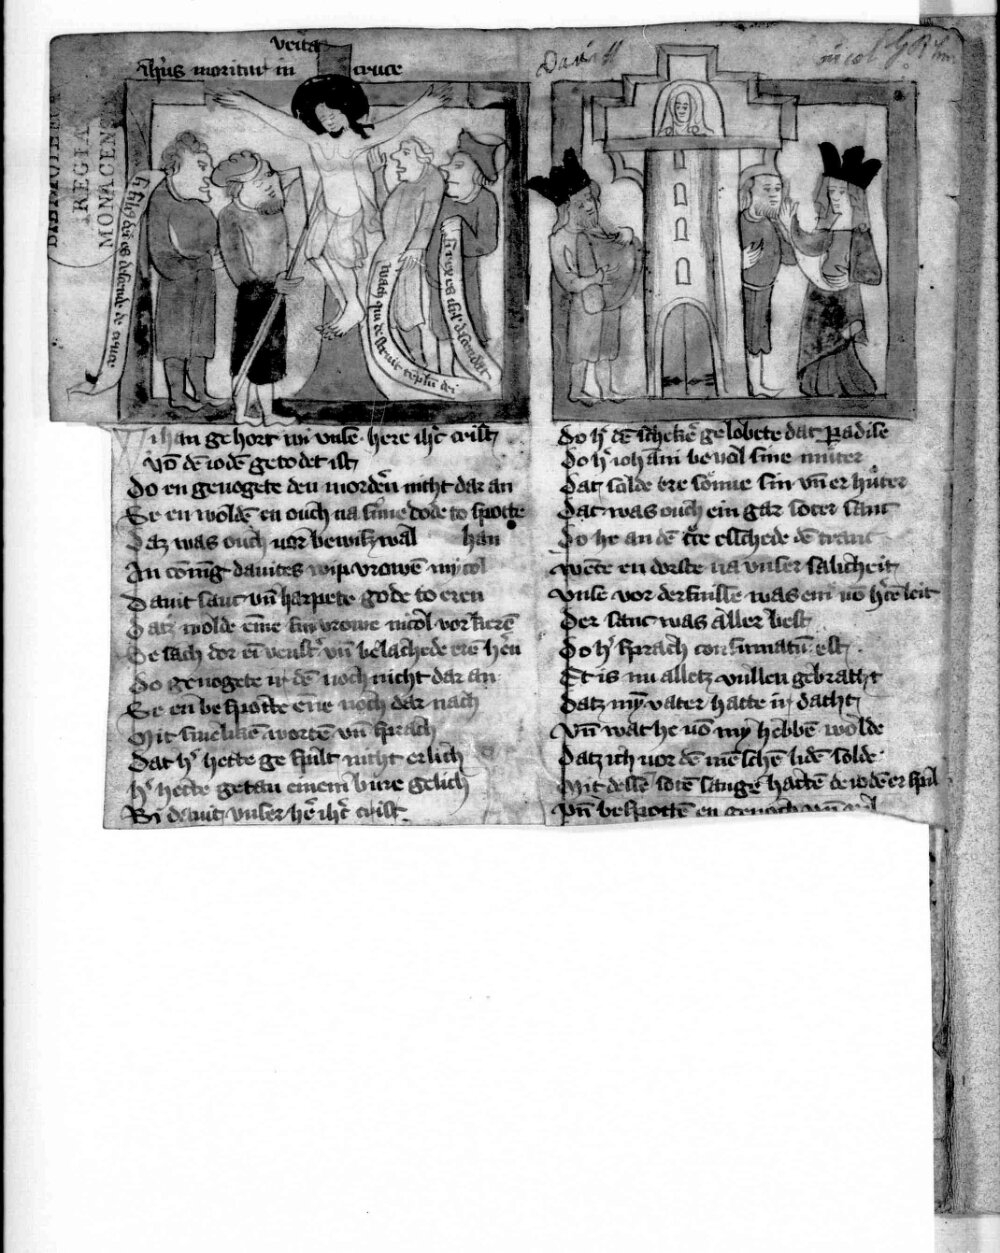 verita
ihūs moritur in cruce
Dauid
nicol
BIBLIOTHECA
REGIA
MONACENSIS
si filius dei es descende de cruce
wach qui destruit tēplū dei
si rex es isrl descendat
Wi han gehort wi vnse here ihc̄ crist
Vō dē iodē getodet ist
Do en genogete den mordeŕn nicht dar an
Se en woldē en ouch na sime dode to spotte
han
Daz was ouch vor bewist wal
An cōning dauites wip vrowē mycol
Dauit sanc vn̄ harpete gode to eren
Datz wolde eme sin vrowe micol vor kerē
Se sach dor ei venstr̄ vn̄ belachede eren hēn
Do genogete ir dē noch nicht dar an
Se en bespotte ene noch dar nach
Mit smeliken wortē vn̄ sprach
Dat hr̄ hette ge spilt nicht erlich
hr̄ hette getan einem bure gelich
Bi dauit vnser hē ihc̄ crist
Do hr̄ dē schekēr gelobete dat paradise
Do hr̄ iohāni beuol sine muter
Dat solde ere sone sin vn̄ er huter
Dat was ouch ein gar soter sanc
Do he an dē crce esschede dē tranc
Wēte en dorste na vnser salicheit
Vnse vor derfnisse was em vō hc̄e leit
Der sanc was aller best
Do hr̄ sprach consummatū est
Et is nu alletz vullen gebracht
Datz my vater hatte in dacht
Vn̄ wat he vō my hebbē wolde
Datz ich vor dē mēschē lidē solde
Mit dessē sotē sange hattē de iodē er spil
Vn̄ bespottē en genoch vn̄ vil